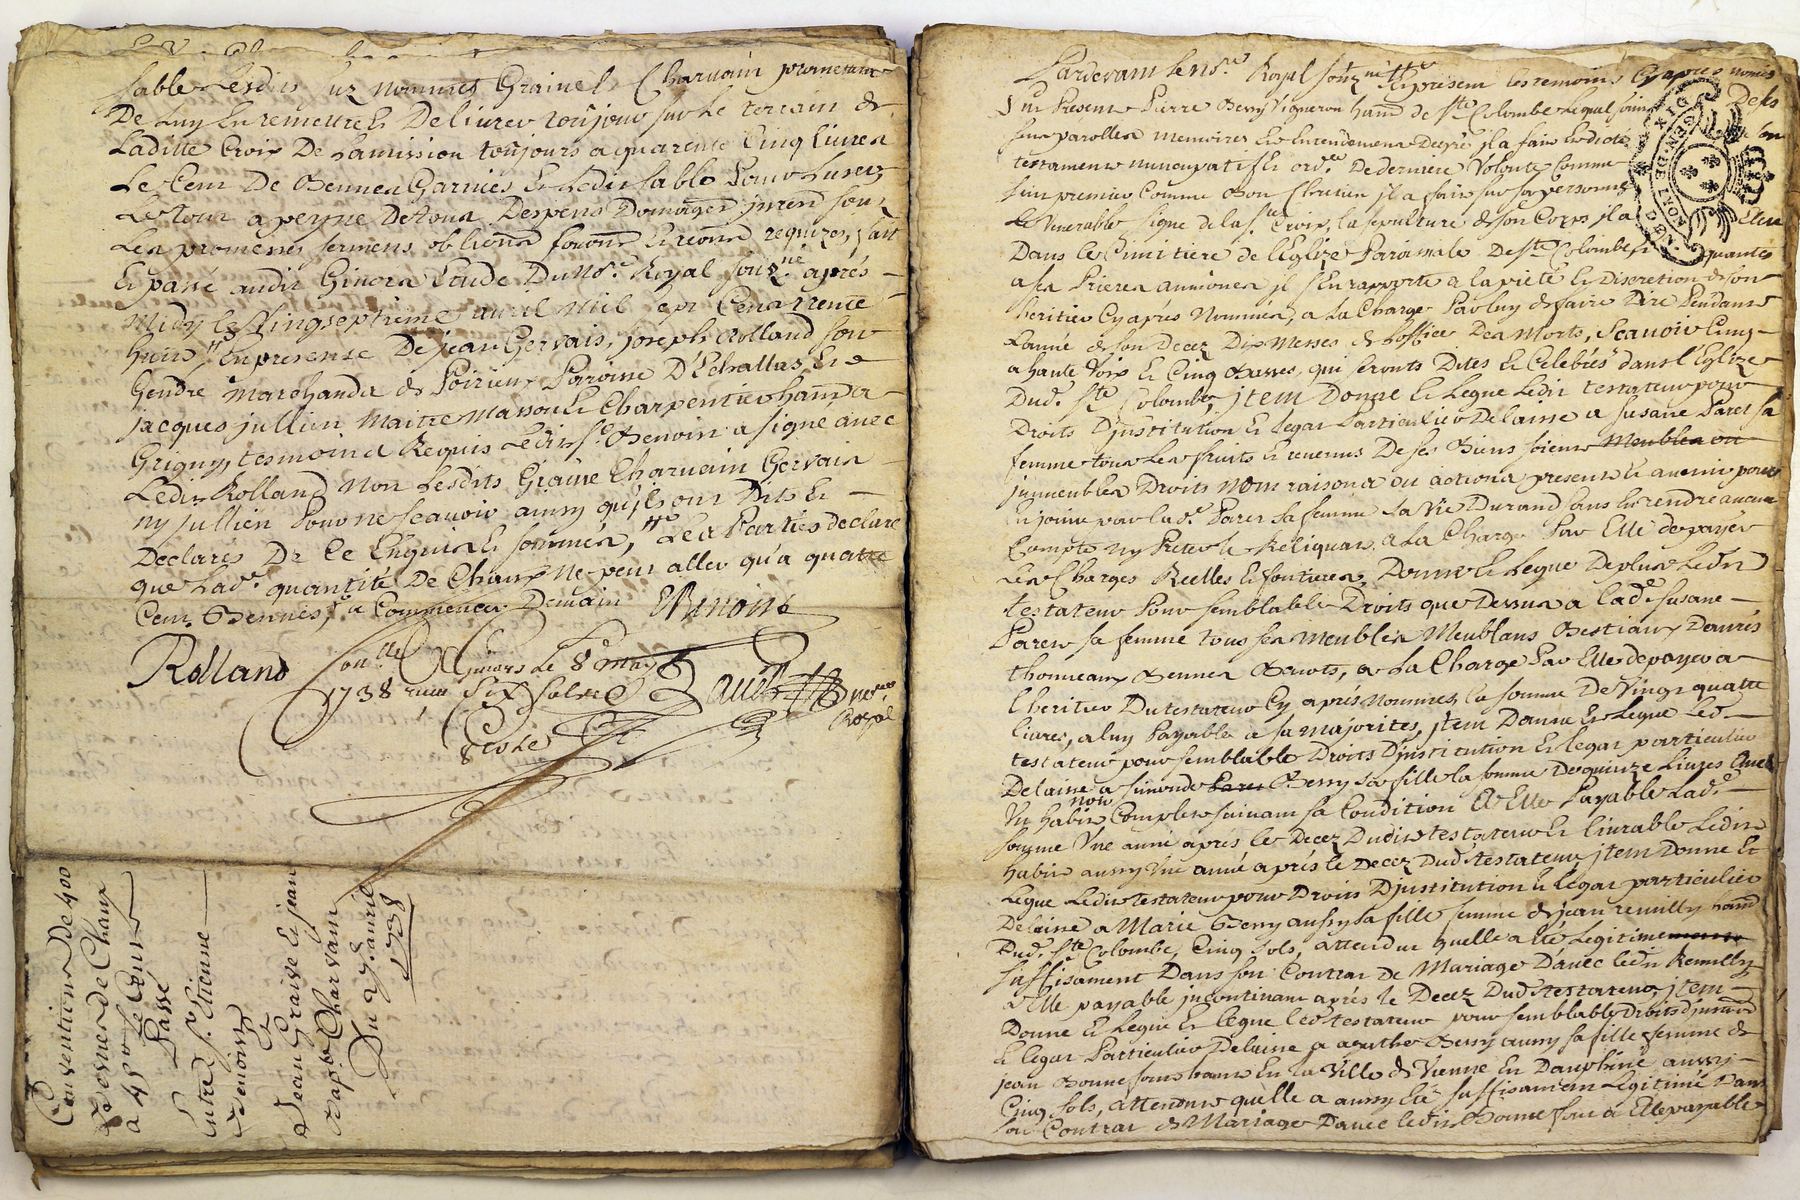 sable Lesdits sus nommés Graine & Charvain promettant
De Luy En remettre & Delivrer toujour sur Le terrain de
Laditte Croix De Lamission toujours a quarente Cinq livres
Le Cent De Bennes Garnies & Ledit sable Pour
Le tout a peyne De tous Despens Domages
Les promesses sermens obligons requizes, fait
Et passé audit Givors Etude Du No.re Royal souz.né aprés
Midy Le Vingseptieme avril Mil sept Cent trente
huit En presense De jean Gervais, joseph Rolland son
Gendre Marchands de Poirieux Paroisse D'Echallas, &
jacques jullien Maitre Masson & Charpentier hant a
Grigny, tesmoins Requis Ledit S.r Benoit a signé avec
Ledit Rolland Non Lesdits Graine Charvain Gervais
ny jullien Pour ne scavoir ainsy qu'ils ont Dit &
Declarés De Ce Enquis & sommés, Les Parties declare
que Lad.e quantité De Chaux ne peut aller qu'a quatre
Cent Bennes, a Commencer Demain EBenoist
Rolland
Con.llé A Givors Le 8.e may
1738 six sols
no.re
Royal
Conventions De 400
Bennes de Chaux
a 45 # Le Cent
Passé
Entre S.r Etienne
Benoist
&
Jean Graive & jean
Bap.te Charvain
Du 27 avril
1738
Pardevant le no.re Royal souz.né & présent les temoins Cyaprés només
fut Présent Pierre Berry Vigneron hant de S.te Colombe Lequel De ses
sens parolles memoires & Entendement Degré jl a fait
testament nuncupatif & ord.ce De derniere Volonté Comme
suit premier Comme Bon Chretien jl a fait sur sa personne
Le Venerable signe de la S.te Croix, la sepulture de son Corps jl a Elue
Dans le Cimitiere de l'Eglize Paroissiale De S.te Colombe, quantes
a ses Prieres aumônes jl s'en rapporte a la pieté & Discretion de son
heritier Cy aprés Nommés, a La Charge Par Luy de faire Dire Pendant
Lanné de son Decez Dix Messes de L'office Des Morts, Scavoir Cinq
a haute Voix & Cinq Basses, qui seronts Dites & Celebrés dans l'Eglize
Dud. S.te Colombe, jtem Donne & Legue Ledit testateur pour
Droits D'jnstitution & legat Particulier Delaisse a Susane Paret sa
femme tous Les fruits & revenus De ses Biens soient Meubles ou
jmmeubles Droits Nom raisons ou actions presents & avenir pour
En jouir par Lad.e Paret sa femme sa Vie Durand sans En rendre aucun
Compte ny Preter le Reliquas, a La Charge Par Elle de payer
Les Charges Reelles & fontieres, Donne & Legue De plus Ledit
testateur Pour semblable Droits que Dessus a Lad.e Susane
Paret sa femme tous ses Meubles Meublans Bestiaux Denrés
thonneaux Bennes Benots, a La Charge Par Elle de payer a
L'heritier Du testateur Cy aprés Nommés, La somme De Vingt quatre
livres, a luy Payable a sa majorites, jtem Donne & Legue Led.
testateur pour semblable Droits D'jnstitution & legat particulier
Delaisse a Simonde Paret Berry sa fille la somme De quinze Livres avec
Un habit now Complet suivant sa Condition a Elle Payable Lad.e
somme Une anné aprés Le Decez Dudit testateur & livrable Ledit
habit aussy Une anné aprés le Decez Dud. testateur, jtem Donne &
Legue Ledit testateur pour Droits D'jnstitution & legat particulier
Delaisse a Marie Berry aussy sa fille femme de jean remilly hant
Dud. S.te Colombe, Cinq Sols, attendu quelle a Eté Legitimement
suffisament Dans son Contrat de Mariage D'avec ledit Remilly
a Elle payable jncontinant aprés le Decez Dud. testateur, jtem
Donne & Legue & legue led. testateur pour semblable Droits
& legat Particulier Delaisse a agathe Berry aussy sa fille femme de
jean Bonnefont hant En la Ville de Vienne En Dauphiné, aussy
Cinq Sols, attendu quelle a aussy Eté suffisament Legitimé Dans
son Contrat de Mariage D'avec ledit Bonnefont a Elle payable